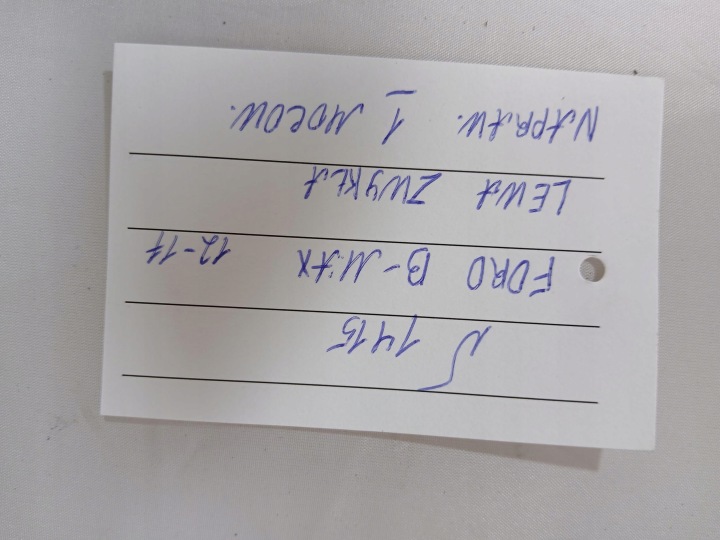 N 1415
FORD B-MAX 12-17
LEWA ZWYKŁA
NAPRAW. 1 MOCOW.